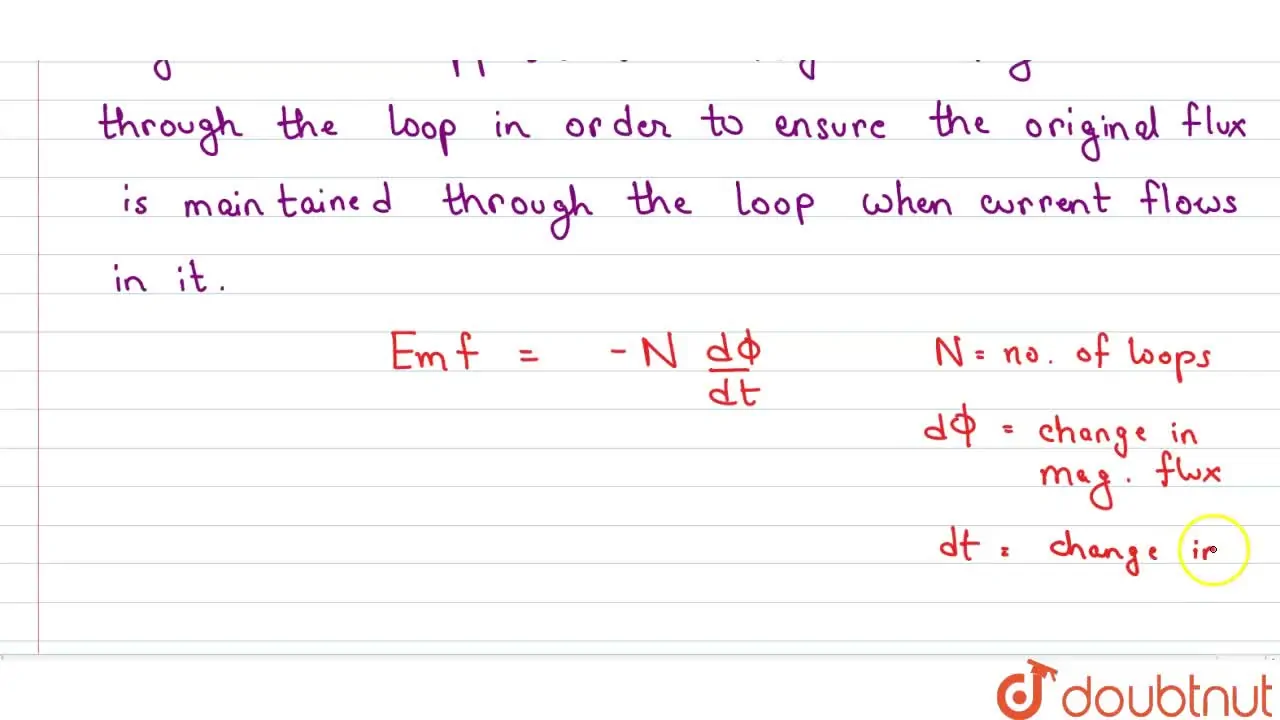 through the loop in order to ensure the original flux
is maintained through the loop when current flows
in it.
Emf = -N dϕ/dt
N = no. of loops
dϕ = change in
mag. flux
dt = change in
doubtnut